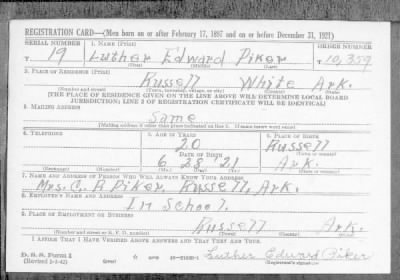 REGISTRATION CARD—(Men born on or after February 17, 1897 and on or before December 31, 1921)
SERIAL NUMBER 1. NAME (Print) ORDER NUMBER
T 19 Luther Edward Piker T 10,359
2. PLACE OF RESIDENCE (Print)
Russell White Ark.
(Number and street) (Town, township, village, or city) (County) (State)
[THE PLACE OF RESIDENCE GIVEN ON THE LINE ABOVE WILL DETERMINE LOCAL BOARD
JURISDICTION; LINE 2 OF REGISTRATION CERTIFICATE WILL BE IDENTICAL]
3. MAILING ADDRESS
Same
[Mailing address if other than place indicated on line 2. If same insert word same]
4. TELEPHONE 5. AGE IN YEARS 6. PLACE OF BIRTH
20 Russell
DATE OF BIRTH (Town or county)
6 28 21 Ark.
(Exchange) (Number) (Mo.) (Day) (Yr.) (State or country)
7. NAME AND ADDRESS OF PERSON WHO WILL ALWAYS KNOW YOUR ADDRESS
Mrs. C. R. Piker, Russell, Ark.
8. EMPLOYER'S NAME AND ADDRESS
In School.
9. PLACE OF EMPLOYMENT OR BUSINESS
Russell Ark.
(Number and street or R. F. D. number) (Town) (County) (State)
I AFFIRM THAT I HAVE VERIFIED ABOVE ANSWERS AND THAT THEY ARE TRUE.
D. S. S. Form 1
(Revised 1-1-42) (over) Luther Edward Piker
(Registrant's signature)